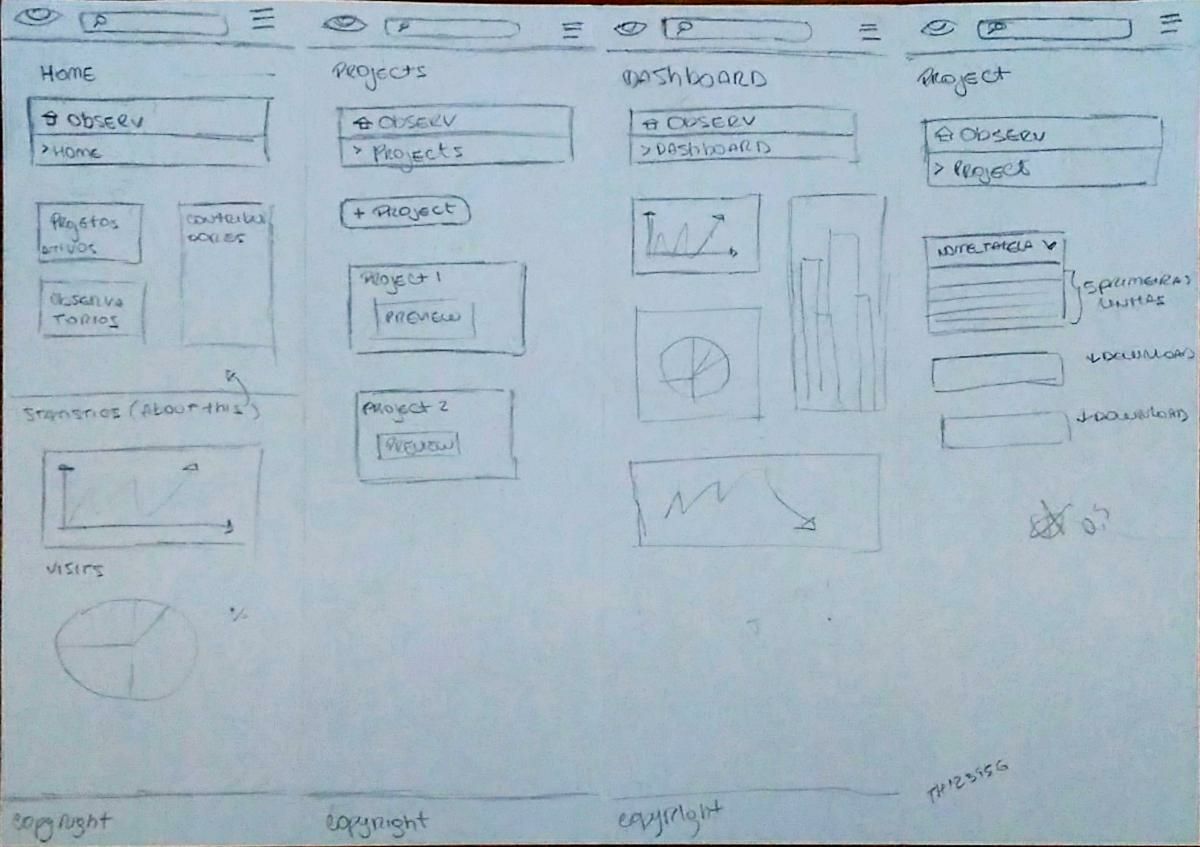 HOME
OBSERV
> HOME
PROJETOS
ATIVOS
CONTRIBUI
DORES
OBSERVA
TORIOS
STATISTICS (ABOUT THIS)
VISITS
%
copyright
PROJECTS
OBSERV
> PROJECTS
+ PROJECT
PROJECT 1
PREVIEW
PROJECT 2
PREVIEW
copyright
DASHBOARD
OBSERV
> DASHBOARD
copyright
PROJECT
OBSERV
> PROJECT
NOME TABELA
5 PRIMEIRAS
LINHAS
DOWNLOAD
DOWNLOAD